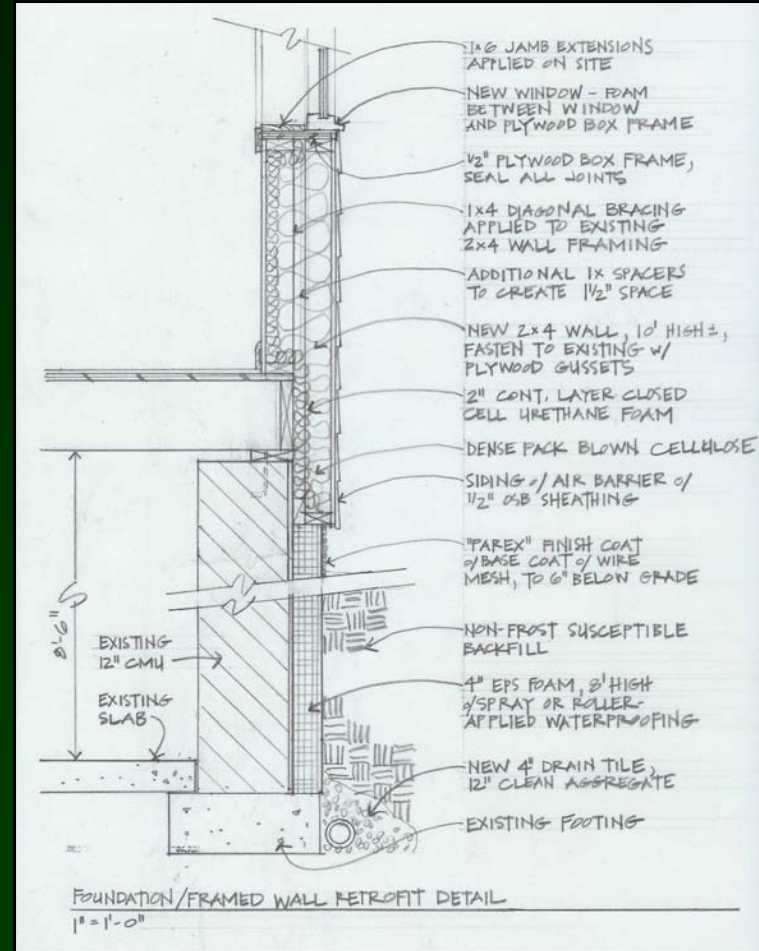 1x6 JAMB EXTENSIONS
APPLIED ON SITE
NEW WINDOW - FOAM
BETWEEN WINDOW
AND PLYWOOD BOX FRAME
1/2" PLYWOOD BOX FRAME,
SEAL ALL JOINTS
1x4 DIAGONAL BRACING
APPLIED TO EXISTING
2x4 WALL FRAMING
ADDITIONAL 1X SPACERS
TO CREATE 1 1/2" SPACE
NEW 2x4 WALL, 10' HIGH ±,
FASTEN TO EXISTING W/
PLYWOOD GUSSETS
2" CONT. LAYER CLOSED
CELL URETHANE FOAM
DENSE PACK BLOWN CELLULOSE
SIDING o/ AIR BARRIER o/
1/2" OSB SHEATHING
"PAREX" FINISH COAT
o/BASE COAT o/ WIRE
MESH, TO 6" BELOW GRADE
NON-FROST SUSCEPTIBLE
BACKFILL
4" EPS FOAM, 8' HIGH
o/SPRAY OR ROLLER-
APPLIED WATERPROOFING
NEW 4" DRAIN TILE,
12" CLEAN AGGREGATE
EXISTING FOOTING
8'-6"
EXISTING
12" CMU
EXISTING
SLAB
FOUNDATION/FRAMED WALL RETROFIT DETAIL
1" = 1'-0"